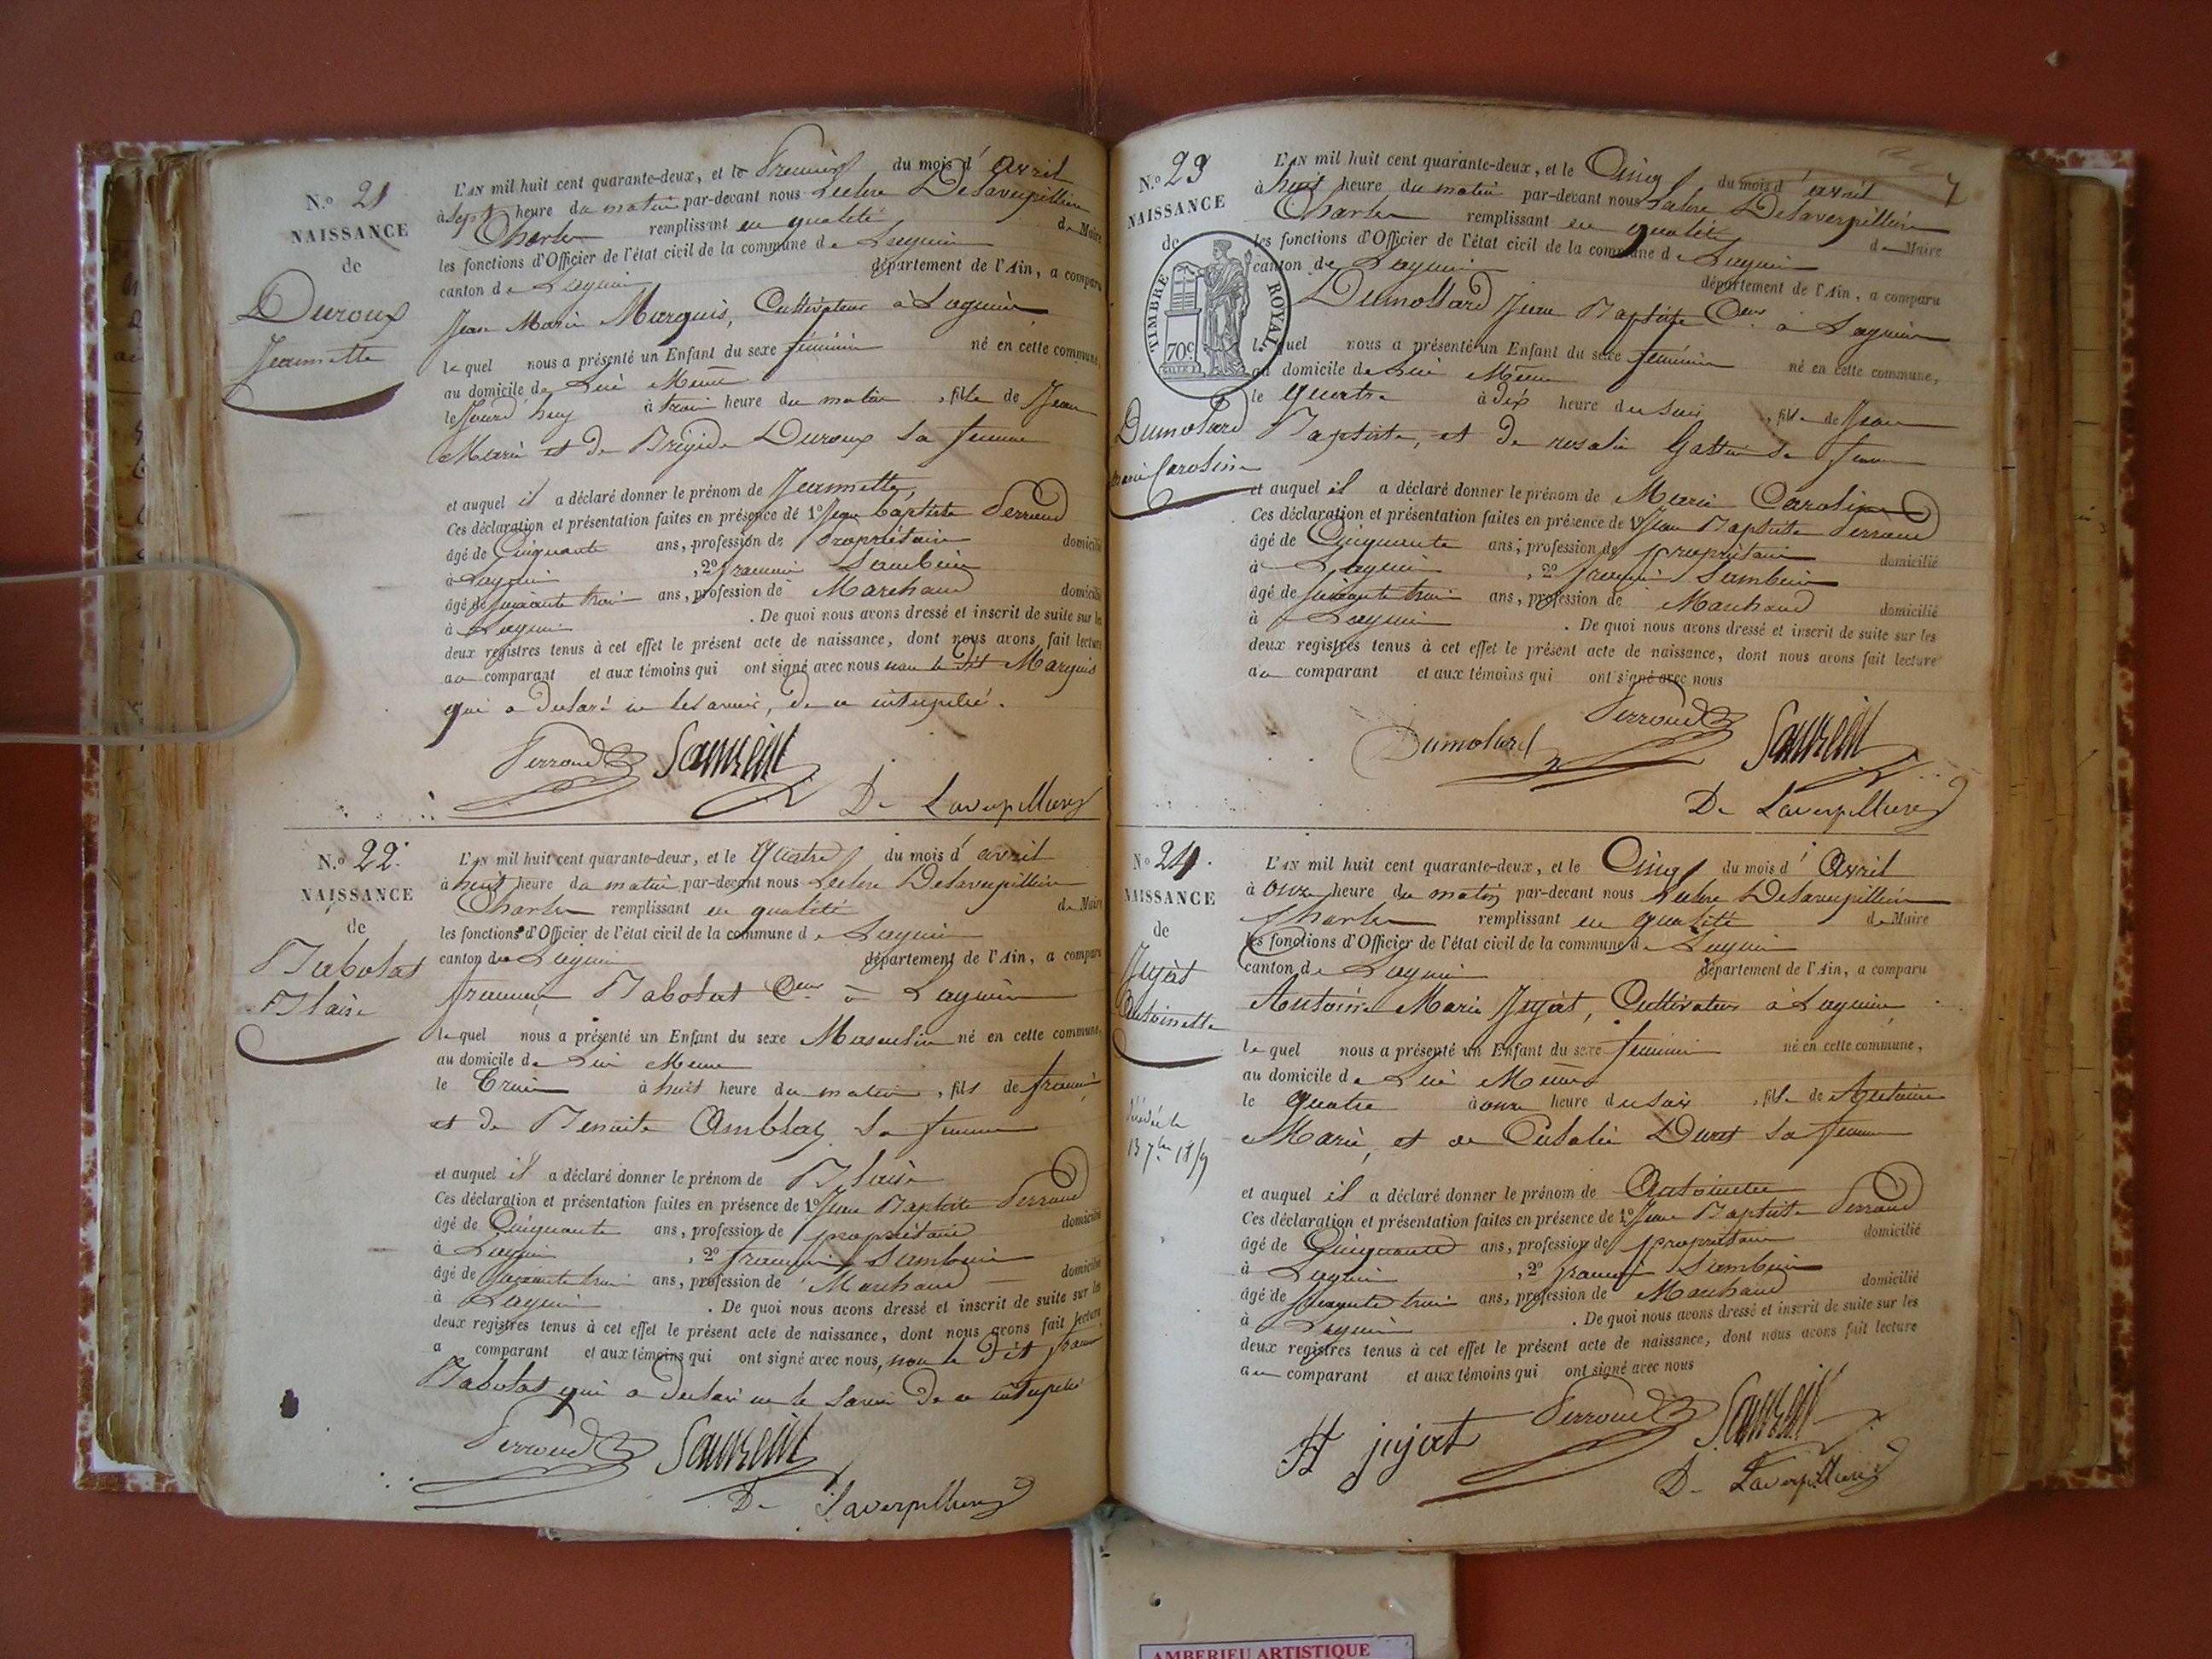 N.o 21
NAISSANCE
de
Duroux
Jeannette
L'AN mil huit cent quarante-deux, et le Premier du mois d'avril
à sept heure du matin par-devant nous Leclerc Delaverpillière
Charles remplissant en qualité de Maire
les fonctions d'Officier de l'état civil de la commune de Lagnieu
canton de Lagnieu département de l'Ain, a comparu
Jean Marie Marquis, Cultivateur à Lagnieu
lequel nous a présenté un Enfant du sexe féminin né en cette commune,
au domicile de Lui Même
le Jourd'huy à trois heure du matin, fille de Jean
Marie et de Brigide Duroux sa femme
et auquel il a déclaré donner le prénom de Jeannette,
Ces déclaration et présentation faites en présence de 1o Jean baptiste Perroud
âgé de Cinquante ans, profession de Propriétaire domicilié
à Lagnieu, 2o françois Sambuin
âgé de soixante trois ans, profession de Marchand domicilié
à Lagnieu. De quoi nous avons dressé et inscrit de suite sur les
deux registres tenus à cet effet le présent acte de naissance, dont nous avons fait lecture
au comparant et aux témoins qui ont signé avec nous non le dit Marquis
qui a déclaré ne le savoir, de ce interpellé.
Perroud
De Laverpilliere
N.o 22.
NAISSANCE
de
Babolat
Blaise
L'AN mil huit cent quarante-deux, et le Quatre du mois d'avril
à huit heure du matin par-devant nous Leclerc Delaverpillière
Charles remplissant en qualité de Maire
les fonctions d'Officier de l'état civil de la commune de Lagnieu
canton de Lagnieu département de l'Ain, a comparu
françois Babolat Ceur à Lagnieu
lequel nous a présenté un Enfant du sexe Masculin né en cette commune,
au domicile de Lui Même
le Trois à huit heure du matin, fils de françois
et de Benoite Amblay sa femme
et auquel il a déclaré donner le prénom de Blaise
Ces déclaration et présentation faites en présence de 1o Jean Baptiste Perroud
âgé de Cinquante ans, profession de propriétaire domicilié
à Lagnieu, 2o françois Sambuin
âgé de soixante trois ans, profession de Marchand domicilié
à Lagnieu. De quoi nous avons dressé et inscrit de suite sur les
deux registres tenus à cet effet le présent acte de naissance, dont nous avons fait lecture
a comparant et aux témoins qui ont signé avec nous, non le dit franc
Babolat qui a déclaré ne le savoir de ce interpellé
Perroud
De Laverpilliere
N.o 23
NAISSANCE
de
TIMBRE ROYAL
70c
Dumolard
Marie Caroline
L'AN mil huit cent quarante-deux, et le Cinq du mois d'avril
à huit heure du matin par-devant nous Leclerc Delaverpillière
Charles remplissant en qualité de Maire
les fonctions d'Officier de l'état civil de la commune de Lagnieu
canton de Lagnieu département de l'Ain, a comparu
Dumollard Jean Baptiste Ceur à Lagnieu
lequel nous a présenté un Enfant du sexe féminin né en cette commune,
au domicile de Lui Même
le Quatre à dix heure du soir, fille de Jean
Baptiste, et de rosalie sa femme
et auquel il a déclaré donner le prénom de Marie Caroline
Ces déclaration et présentation faites en présence de 1o Jean Baptiste Perroud
âgé de Cinquante ans, profession de propriétaire domicilié
à Lagnieu, 2o françois Sambuin
âgé de soixante trois ans, profession de Marchand domicilié
à Lagnieu. De quoi nous avons dressé et inscrit de suite sur les
deux registres tenus à cet effet le présent acte de naissance, dont nous avons fait lecture
au comparant et aux témoins qui ont signé avec nous
Perroud
Dumolard
De Laverpilliere
N.o 24.
NAISSANCE
de
Jujat
Antoinette
Décédée le
13 7bre
L'AN mil huit cent quarante-deux, et le Cinq du mois d'Avril
à onze heure du matin par-devant nous Leclerc Delaverpillière
Charles remplissant en qualité de Maire
les fonctions d'Officier de l'état civil de la commune de Lagnieu
canton de Lagnieu département de l'Ain, a comparu
Antoine Marie Jujat, Cultivateur à Lagnieu,
lequel nous a présenté un Enfant du sexe féminin né en cette commune,
au domicile de Lui Même
le Quatre à onze heure du soir, fille de Antoine
Marie, et de Eulalie Durat sa femme
et auquel il a déclaré donner le prénom de Antoinette
Ces déclaration et présentation faites en présence de 1o Jean Baptiste Perroud
âgé de Cinquante ans, profession de propriétaire domicilié
à Lagnieu, 2o françois Sambuin
âgé de soixante trois ans, profession de Marchand domicilié
à Lagnieu. De quoi nous avons dressé et inscrit de suite sur les
deux registres tenus à cet effet le présent acte de naissance, dont nous avons fait lecture
au comparant et aux témoins qui ont signé avec nous
jujat Perroud
De Laverpilliere
AMBERIEU ARTISTIQUE